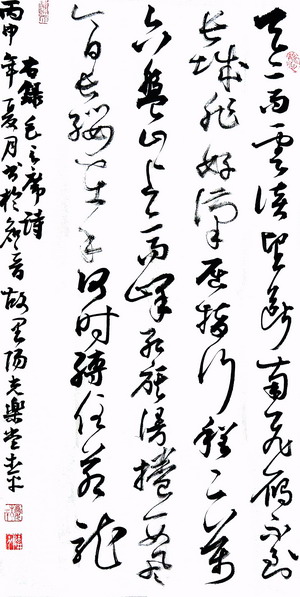 天高雲淡望斷南飛雁不到
長城非好漢屈指行程二萬
六盤山上高峰紅旗漫捲西風
今日長纓在手何時縛住蒼龍
右錄毛主席詩
丙申年夏月书於觀音故里陽光樂堂